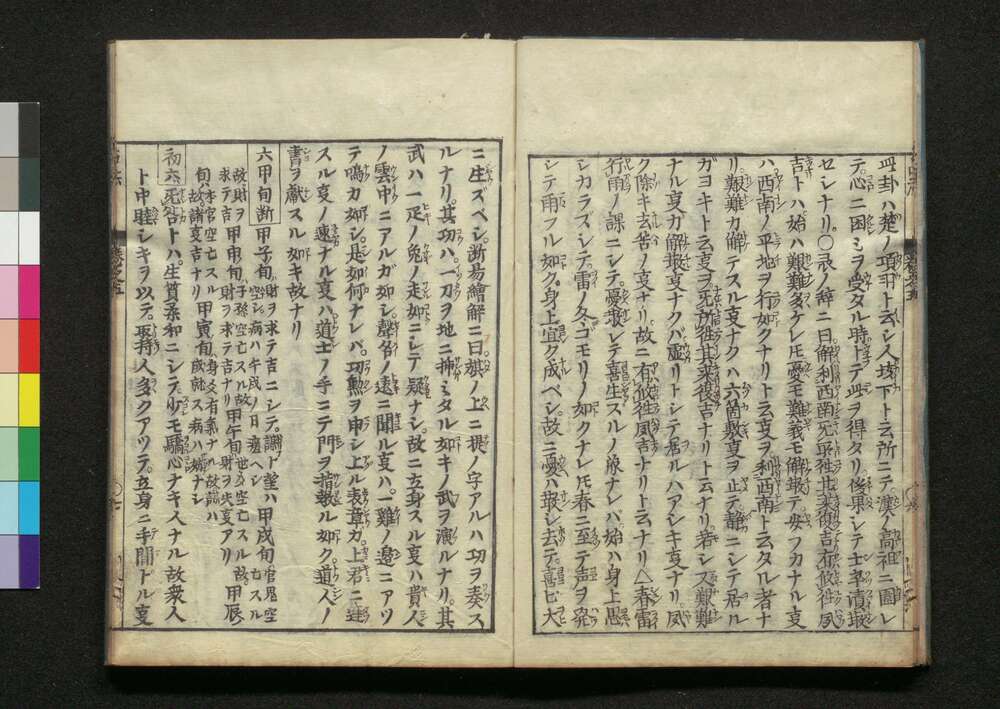 此卦ハ楚ノ項羽ト云シ人垓下ト云所ニテ漢ノ高祖ニ圍レ
テ心ニ困シヲ受タル時卜テ此ヲ得タリ後果シテ士卒潰散
セシナリ○彖ノ辞ニ曰解利西南无所往其来復吉有攸往夙
吉トハ始ハ艱難多ケレ𪜈憂モ難義モ解散テ安フカナル事
ハ西南ノ平地ヲ行如クナリト云事ヲ利西南ト云タル者ナ
リ艱難カ解テスル事ナクハ六箇敷事ヲ止テ静ニシテ居ル
ガヨキト云事ヲ无所往其来復吉ナリト云ナリ若シ又艱難
ナル事ガ解散事ナクバ虚リトシテ居ルハアシキ事ナリ夙
ク除キ去吉ノ事ナリ故ニ有攸往夙吉ナリト云ナリ△春雷
行雨ノ課ニシテ憂散テ喜生スルノ象ナレバ始ハ身上思
シカラズシテ雷ノ冬コモリノ如クナレ𪜈春ニ至テ声ヲ発
シテ雨フル如ク身上宜ク成ベシ故ニ憂ハ散シ去テ喜ビ大
ニ生ズベシ断易繪解ニ曰旗ノ上ニ提ノ字アルハ功ヲ奏ス
ルナリ其功ハ一刀ヲ地ニ挿ミタル如キノ武ヲ演ルナリ其
武ハ一疋ノ兔ノ走如ニシテ疑ナシ故ニ立身スル事ハ貴人
ノ雲中ニアルガ如シ聲名ノ遠ニ聞ル事ハ一雞ノ邉ニアツ
テ鳴カ如シ是如何ナレバ功勲ヲ申シ上ル表章カ上君ニ達
スル事ノ速ナル事ハ道士ノ手ニテ門ヲ指報ル如ク道人ノ
書ヲ献スル如キ故ナリ
六甲旬断 甲子旬 財ヲ求テ吉ニシテ謁テ望ハ空シ病ハ午戌ノ日癒ヘシ 甲戌旬 官鬼空亡スル
故財ヲ求テ吉 甲申旬 子孫空亡スル故財ヲ求テ吉ナリ 甲午旬 世爻空亡スル故財ヲ失事アリ 甲辰
旬 本官空亡スル故諸事吉ナリ 甲寅旬 身爻有氣ナル故謁ハ成就ス病ハ禍ナシ
初六无咎トハ生質柔和ニシテ少モ驕心ナキ人ナル故衆人
ト中睦シキヲ以テ取持人多クアツテ立身ニ手間トル事